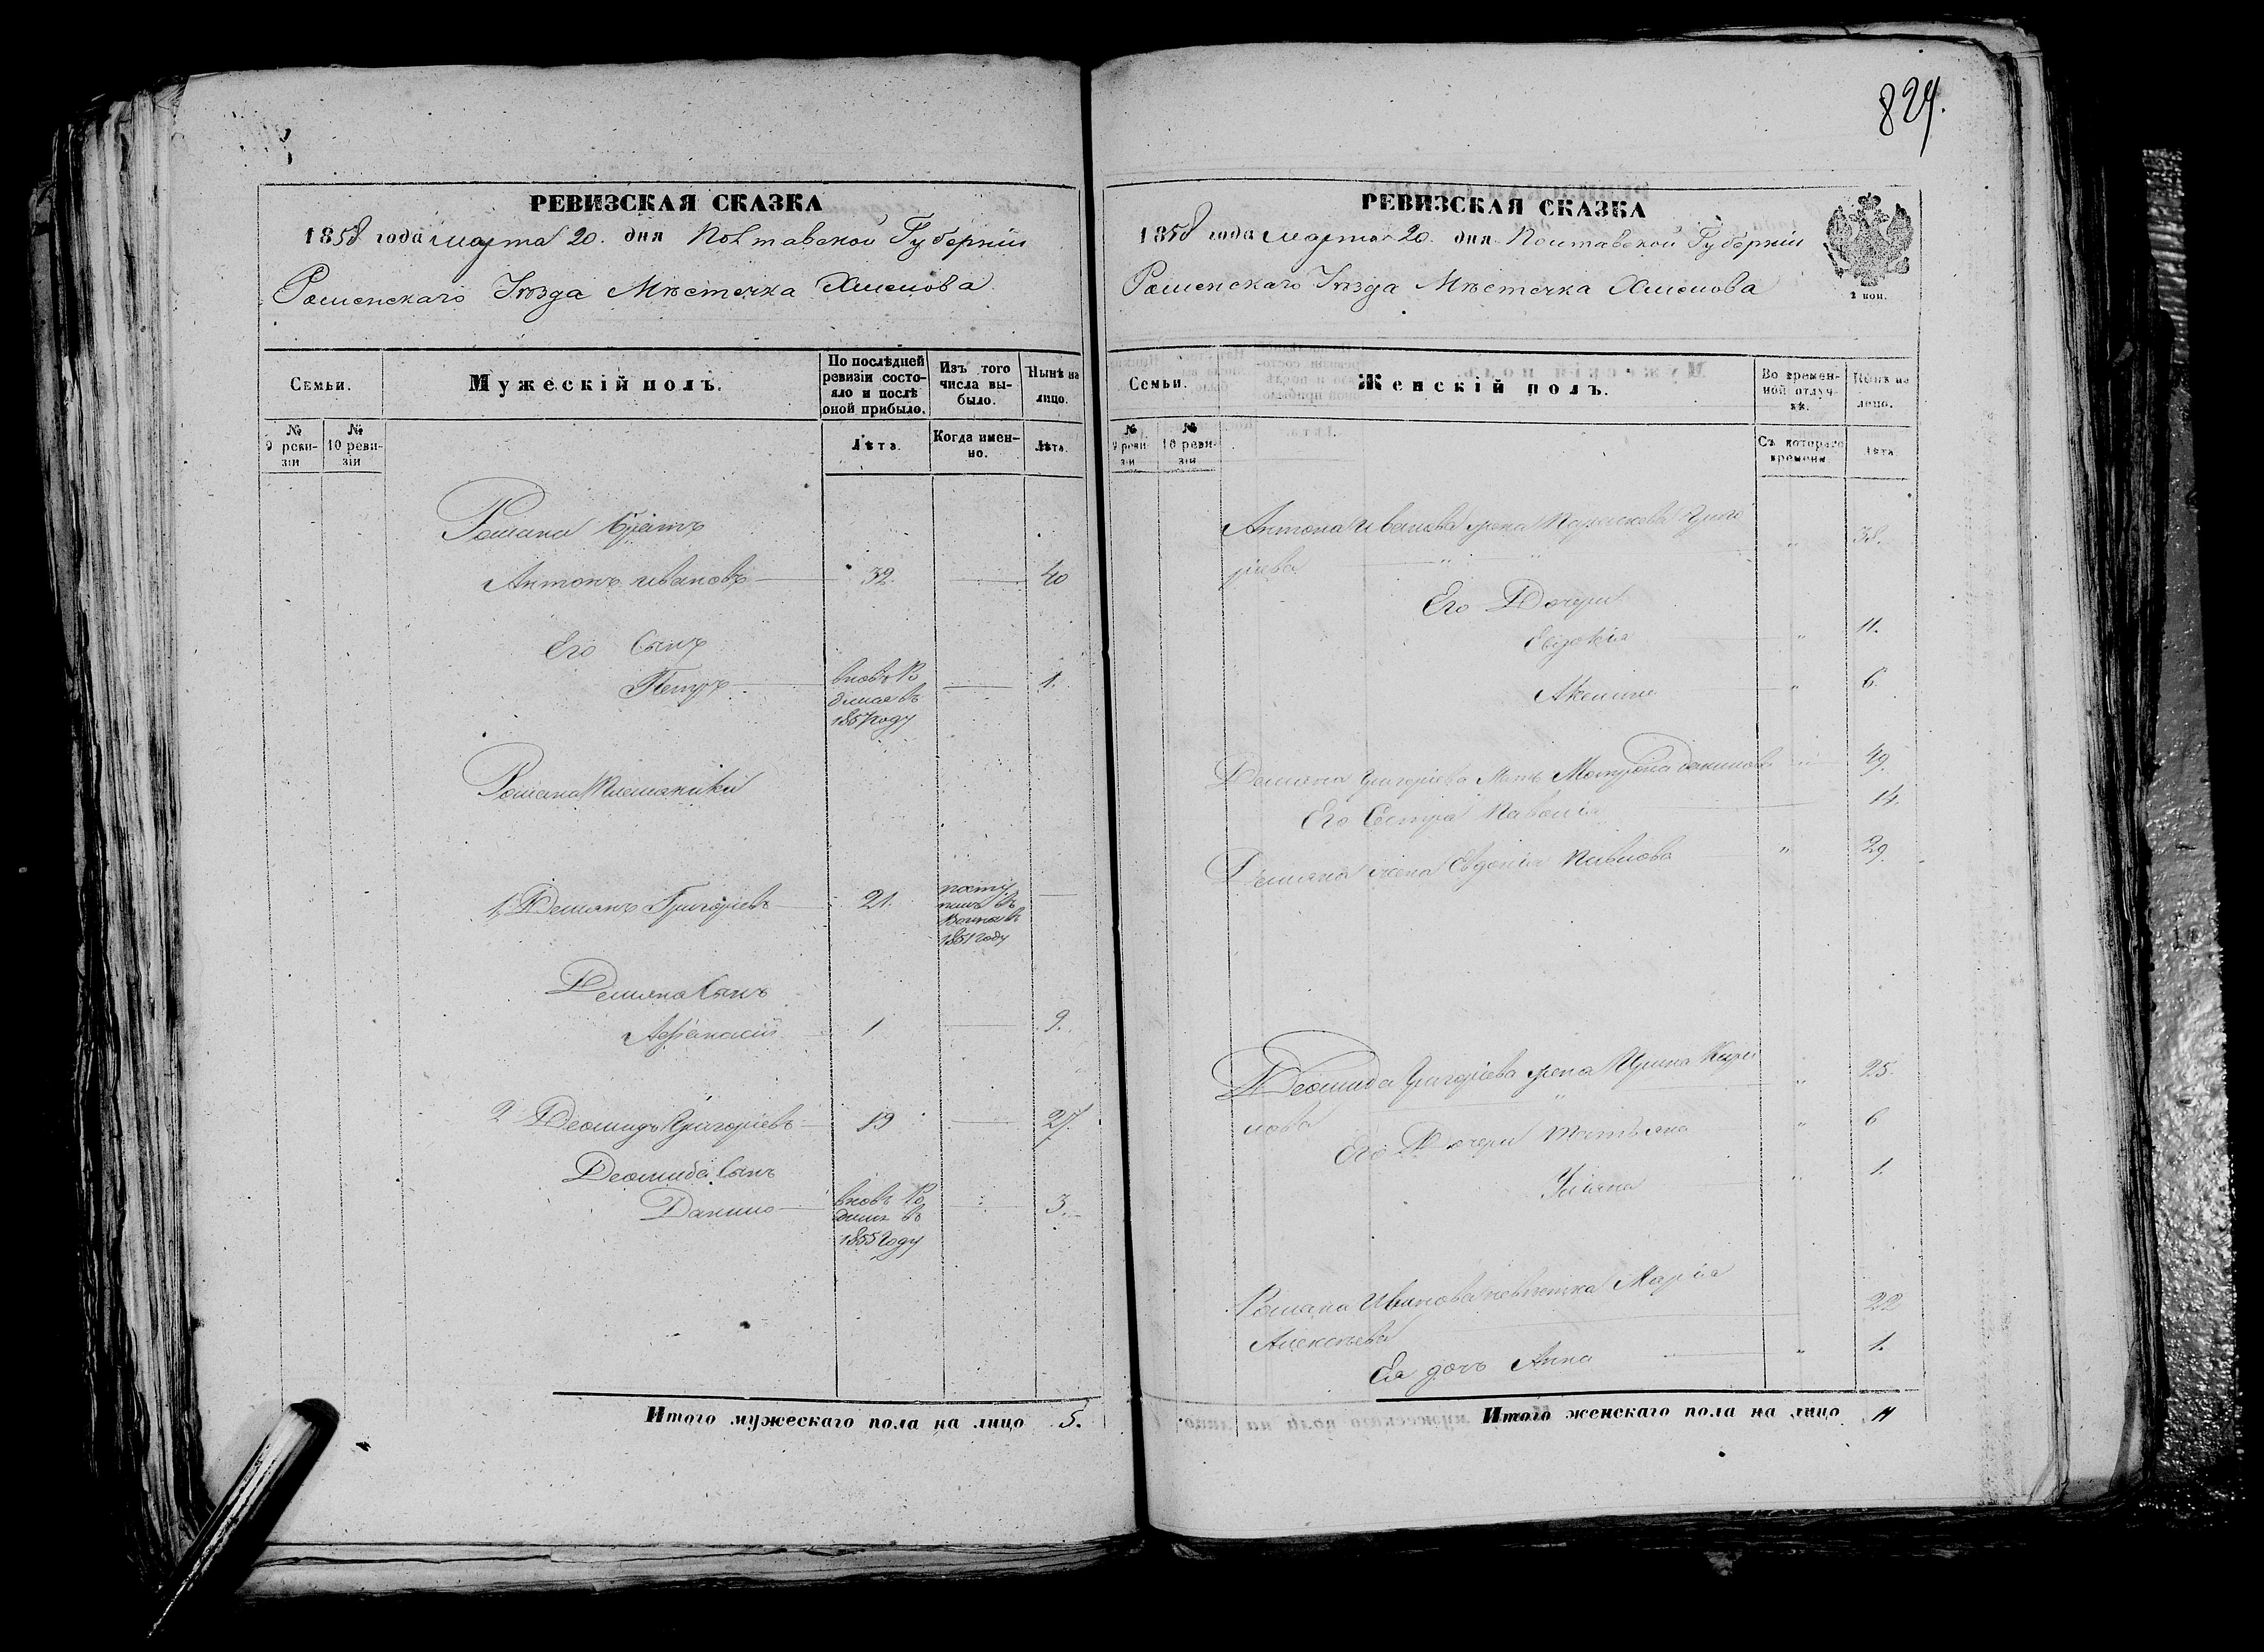 824.
РЕВИЗСКАЯ СКАЗКА
1858 года марта 20. дня Полтавской Губерніи
Роменскаго Уѣзда Мѣстечка Хмелова
Семьи.
Мужескій полъ.
По послѣдней ревизіи состо-
яло и послѣ
оной прибыло.
Изъ того
числа вы-
было.
Нынѣ на
лицо.
№
9 реви-
зіи
№
10 реви-
зіи
Лѣта.
Когда имен-
но.
Лѣта.
Романа братъ
Антонъ Ивановъ 32. 40
Его Сынъ
Петръ вновь Ро
дился въ
1857 году 1.
Романа Племянники
1, Демянъ Григоріевъ 21. посту
пилъ въ
1851 году
Демяна Сынъ
Афанасій 1 9.
2 Деомидъ Григоріевъ 19 27.
Деомида Сынъ
Данило вновь Ро
дился въ
1855 году 3.
Итого мужескаго пола на лицо 5.
РЕВИЗСКАЯ СКАЗКА
1858 года марта 20. дня Полтавской Губерніи
Роменскаго Уѣзда Мѣстечка Хмелова
2 коп.
Семьи.
Женскій полъ.
Во времен-
ной отлуч-
кѣ.
Нынѣ на
лицо.
№
9 реви-
зіи
№
10 реви-
зіи
Съ котораго
времени.
Лѣта
Антона Иванова жена Параскева Григо
ріева " 38.
Его Дочери
Евдокія " 11.
Аксинія " 6.
Демяна Григоріева Мать Матрона Данилова " 49.
Его Сестра 14.
Демяна жена Евдокія Павлова " 29.
Деомида Григоріева жена Ирина Кири
лова " 25.
Его Дочери Татьяна " 6
Уліяна " 1.
Романа Иванова невѣстка Марія
Алексѣева 22
Ея дочь Анна " 1.
Итого женскаго пола на лицо 11